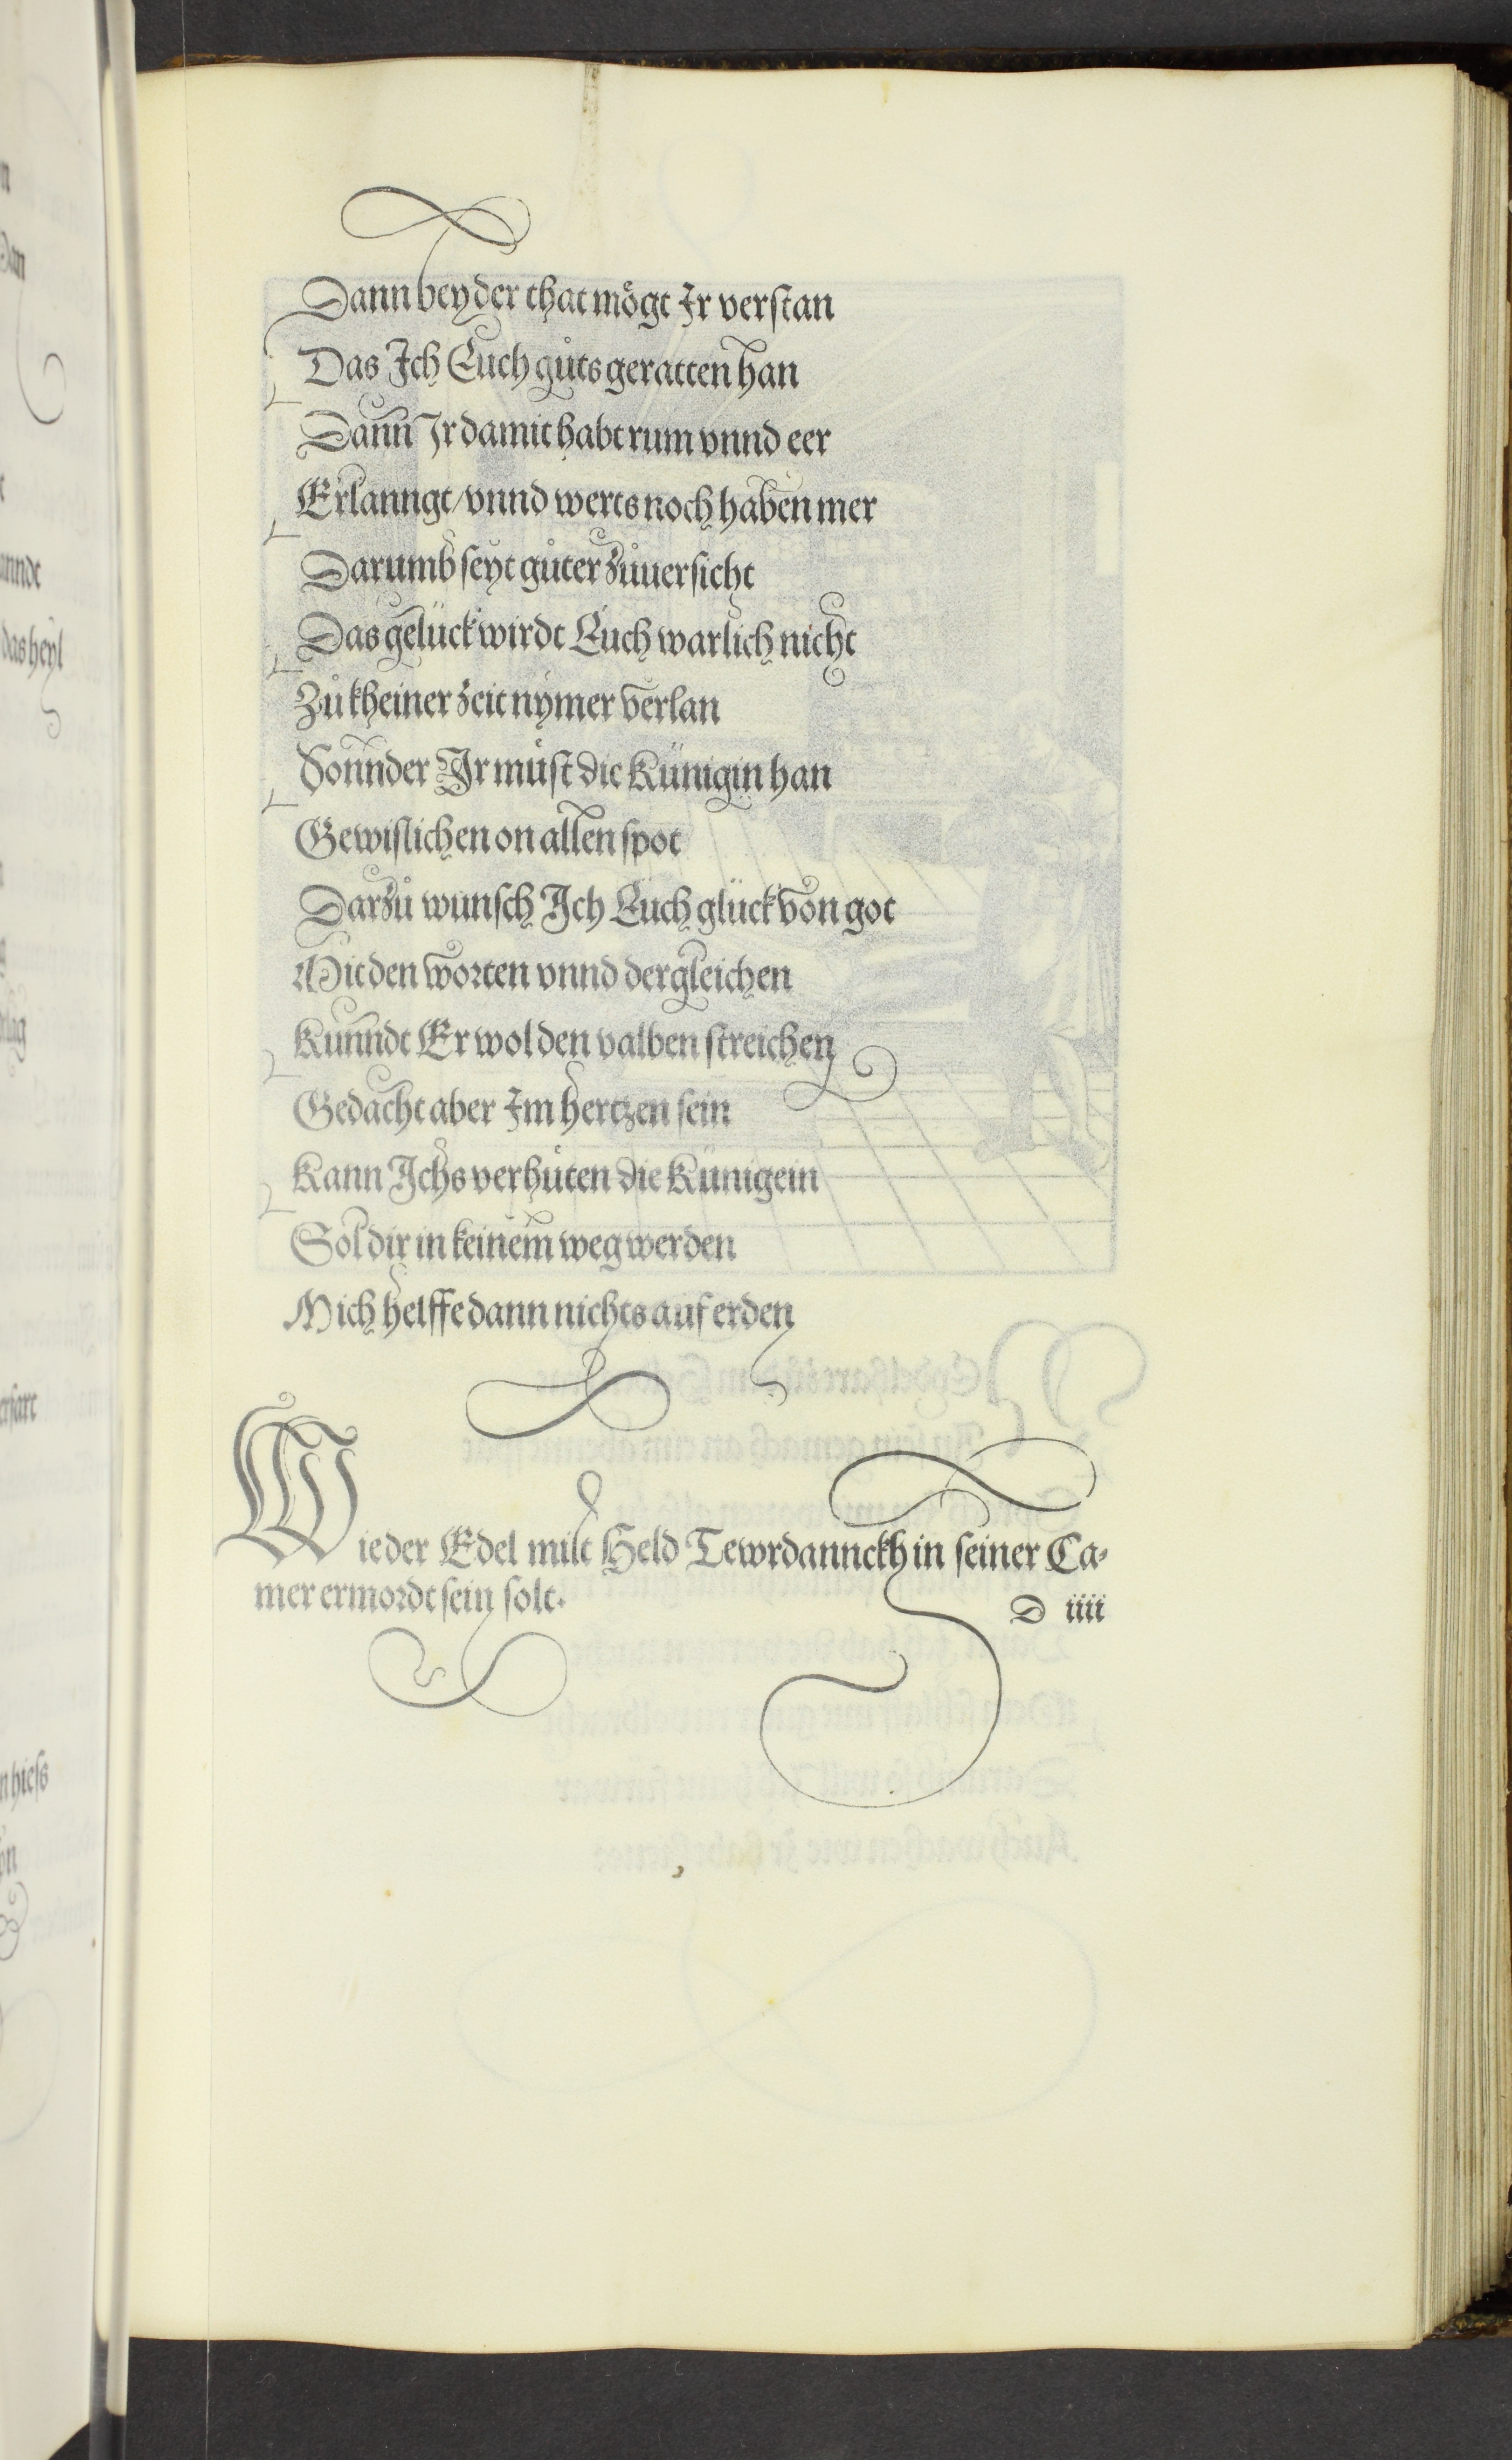 Dann bey der that mögt Ir verstan
Das Ich Euch gůts geratten han
Dann Ir damit habt rum vnnd eer
Erlanngt/ vnnd werts noch haben mer
Darumb seyt gůter zůuersicht
Das gelück wirdt Euch warlich nicht
Zů kheiner zeit nymer verlan
Sonnder Ir můst die Künigin han
Gewislichen on allen spot
Darzů wunsch Ich Euch glück von got
Mit den worten vnnd dergleichen
Kunndt Er wol den valben streichen
Gedacht aber Im hertzen sein
Kann Ichs verhüten die Künigein
Sol dir in keinem weg werden
Mich helffe dann nichts auf erden
Wie der Edel milt Held Tewrdannckh in seiner Ca-
mer ermordt sein solt.
D iiii